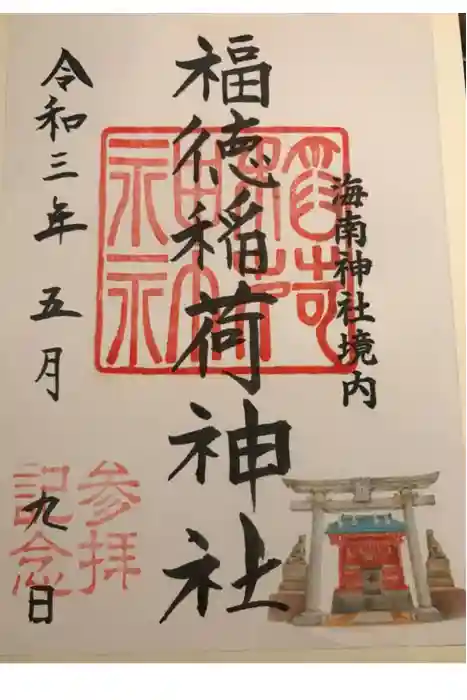 海南神社境内
福徳稲荷神社
令和三年五月九日
参拝
記念